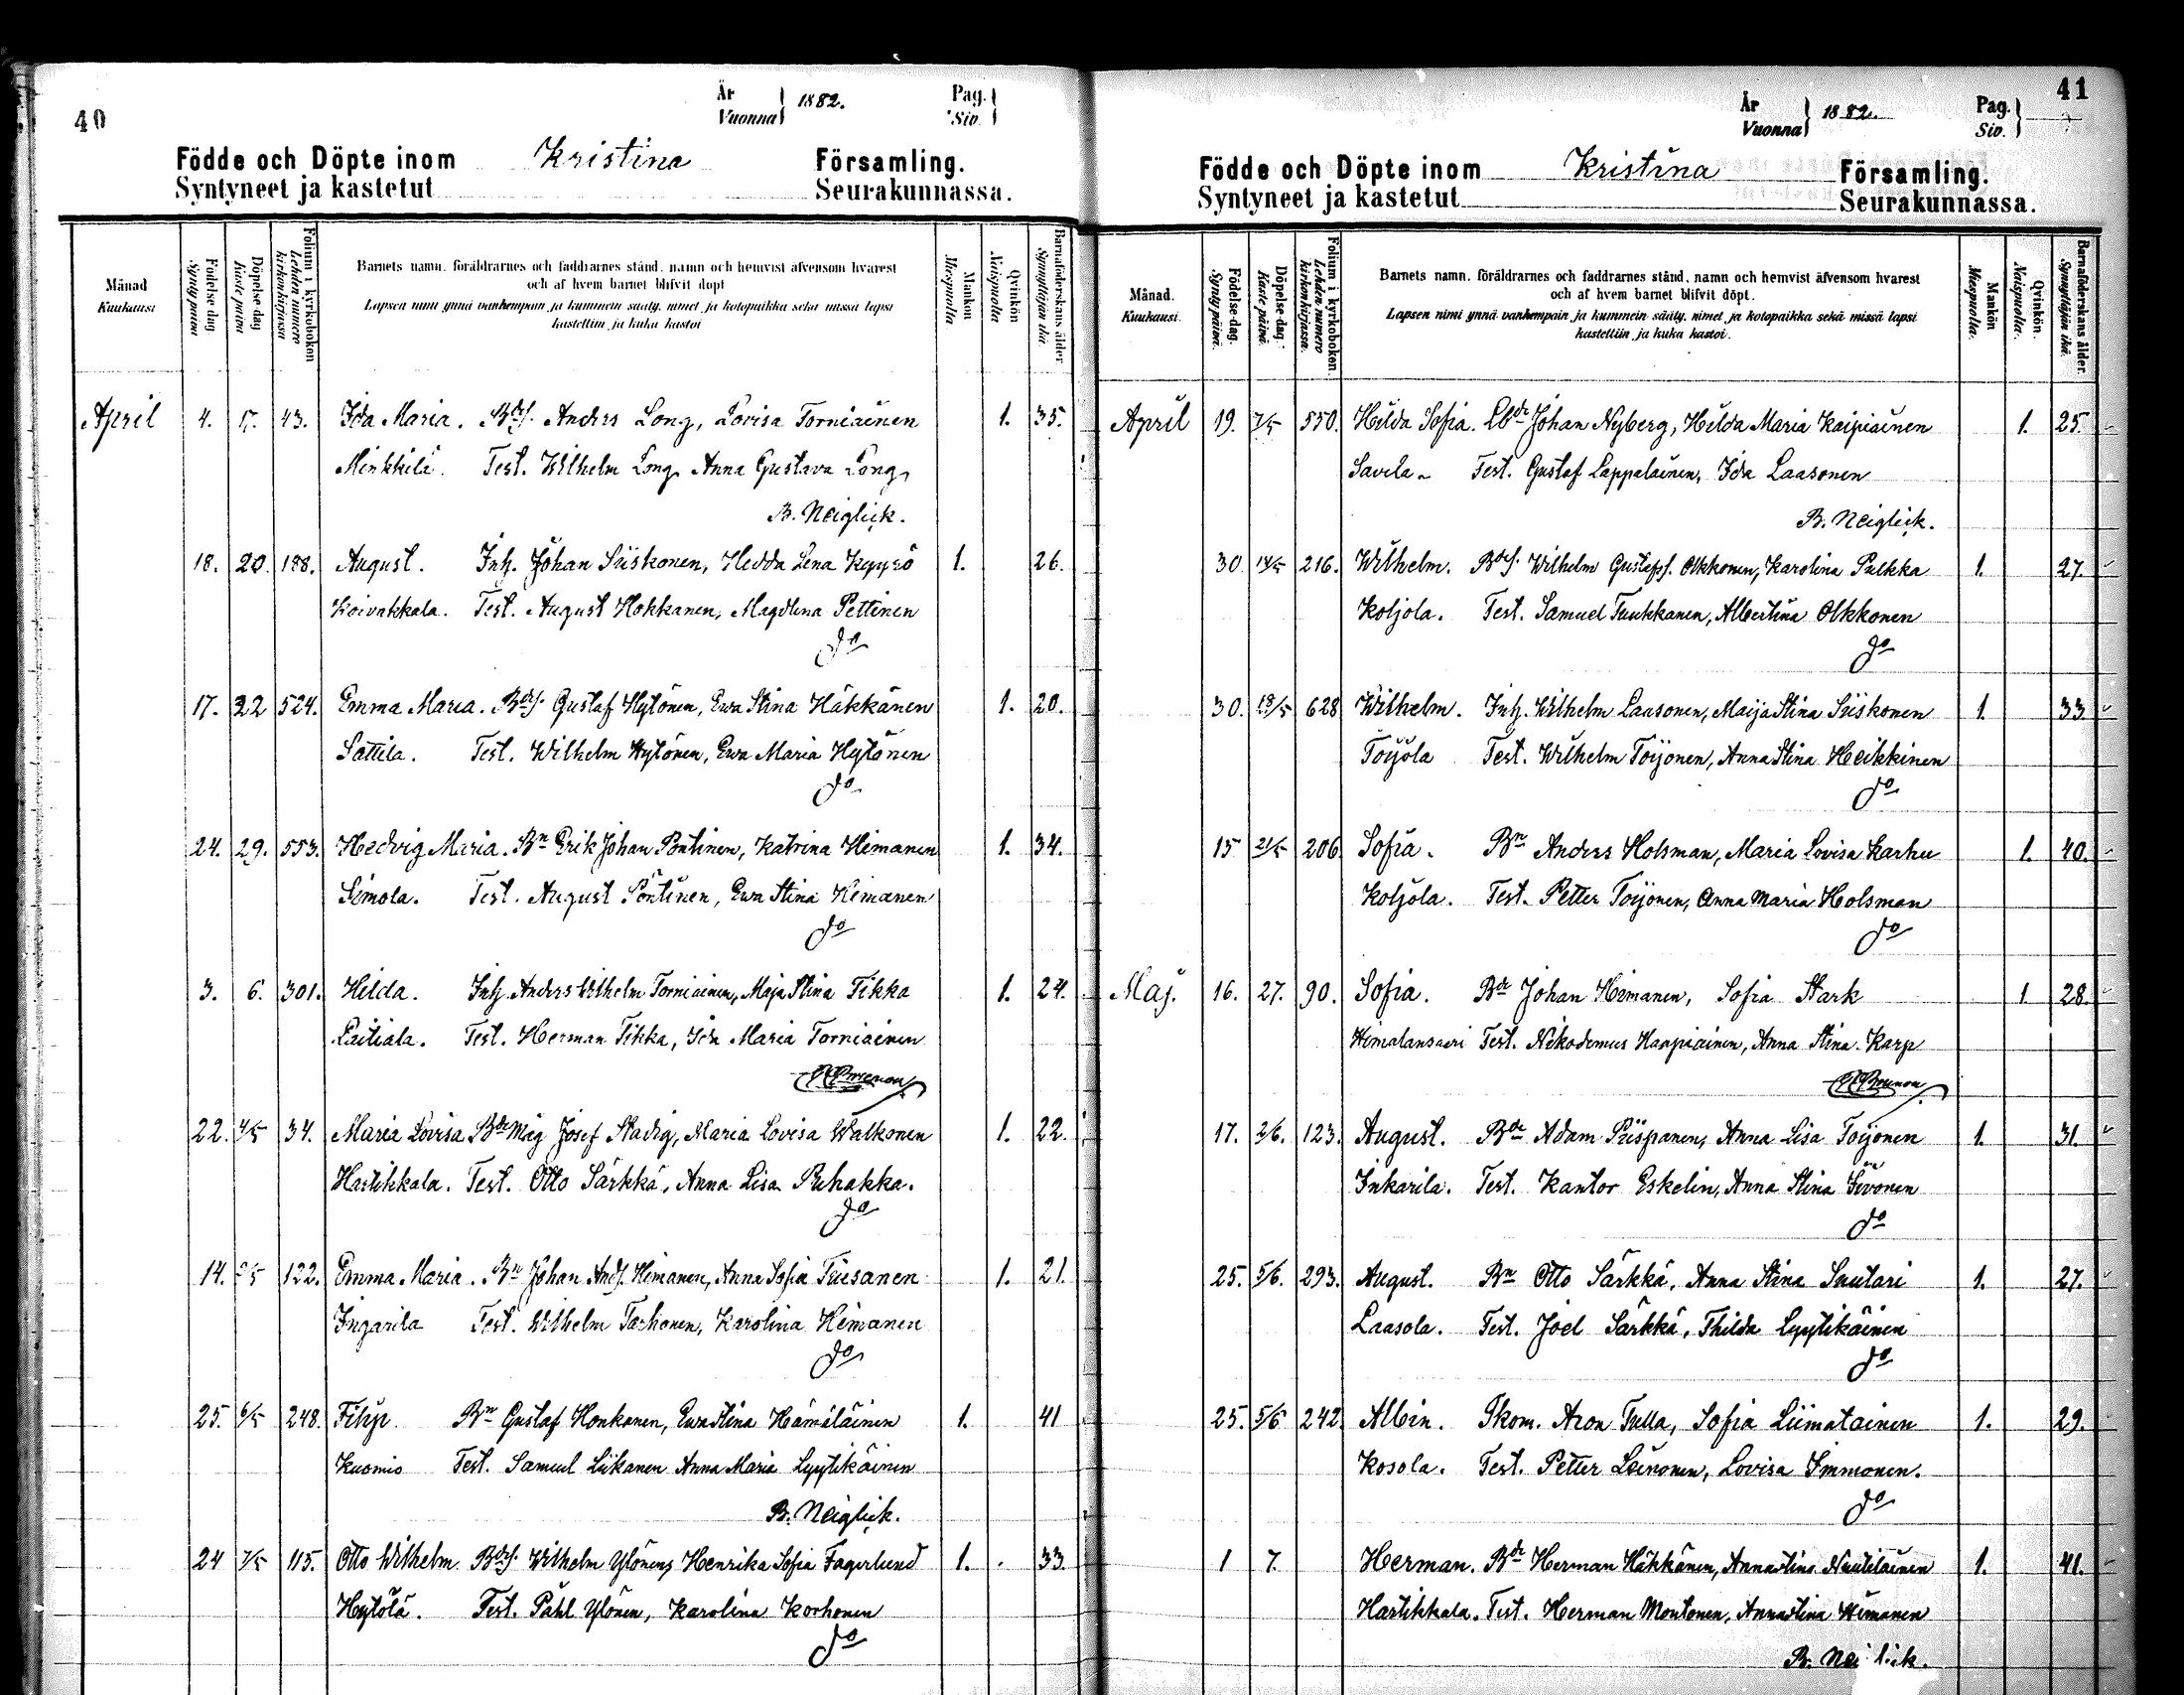 40
År
Vuonna 1882.
Pag.
Siv.
Födde och Döpte inom Kristina Församling.
Syntyneet ja kastetut Seurakunnassa.
Månad
Kuukausi
Födelse dag
Synty päivä
Döpelse dag
Kaste päivä
Folium i kyrkoboken
Lehden numero kirkonkirjassa
Barnets namn, föräldrarnes och faddrarnes stånd, namn och hemvist äfvensom hvarest
och af hvem barnet blifvit döpt
Lapsen nimi ynnä vanhempain ja kummein sääty, nimet ja kotopaikka sekä missä lapsi
kastettiin ja kuka kastoi
Mankön
Miespuolta
Qvinkön
Naispuolta
Barnaföderskans ålder
Synnyttäjän ikä
April 4. 43. Ida Maria. Bds. Anders Long, Lovisa Torniainen 1. 35.
Minkkilä. Test. Wilhelm Long, Anna Gustava Long
B. Neiglick.
18. 20. 188. August. Inh. Johan Siiskonen, Hedda Lena Kyyrö 1. 26.
Koivakkala. Test. August Hokkanen, Magdlena Pettinen
do
17. 22 524. Emma Maria. Bds. Gustaf Hytönen, Ewa Stina Häkkänen 1. 20.
Sattila. Test. Wilhelm Hytönen, Ewa Maria Hytönen
do
24. 29. 553. Hedvig Maria. Bn Erik Johan Pöntinen, Katrina Himanen 1. 34.
Simola. Test. August Pöntinen, Ewa Stina Himanen
do
3. 6. 301. Hilda. Inh. Anders Wilhelm Torniainen, Maja Stina Tikka 1. 24.
Paitiala. Test. Herman Tikka, Ida Maria Torniainen
22. 4/5 34. Maria Lovisa Bde Måg Josef Stadig, Maria Lovisa Walkonen 1. 22.
Hartikkala. Test. Otto Särkkä, Anna Lisa Puhakka.
do
14. 122. Emma Maria. Bn Johan Ands. Himanen, Anna Sofia Tiusanen 1. 21.
Ingarila Test. Wilhelm Tarhonen, Karolina Himanen
do
25. 6/5 248. Filip. Bn Gustaf Honkanen, Ewa Stina Hämäläinen 1. 41
Kuomio Test. Samuel Liikanen Anna Maria Lyytikäinen
B. Neiglick.
24 7/5 115. Otto Wilhelm. Bds. Wilhelm Ylönens Henrika Sofia Fagerlund 1. 33.
Hytölä. Test. Påhl Ylönen, Karolina Korhonen
do
41
År
Vuonna 1882.
Pag.
Siv.
Födde och Döpte inom Kristina Församling.
Syntyneet ja kastetut Seurakunnassa.
Månad.
Kuukausi.
Födelse-dag.
Synty päivä.
Döpelse-dag.
Kaste päivä.
Folium i kyrkoboken.
Lehden numero kirkonkirjassa.
Barnets namn, föräldrarnes och faddrarnes stånd, namn och hemvist äfvensom hvarest
och af hvem barnet blifvit döpt.
Lapsen nimi ynnä vanhempain ja kummein sääty, nimet ja kotopaikka sekä missä lapsi
kastettiin ja kuka kastoi.
Mankön
Miespuolta.
Qvinkön.
Naispuolta.
Barnaföderskans ålder.
Synnyttäjän ikä.
April 19. 7/5 550. Hilda Sofia. Lbde Johan Nyberg, Hilda Maria Kaipiainen 1. 25.
Savila. Test. Gustaf Lappalainen, Ida Laasonen
B. Neiglick.
30 14/5 216. Wilhelm. Bds. Wilhelm Gustafs. Olkkonen, Karolina Pulkka 1. 27.
Koljola. Test. Samuel Tuukkanen, Albertina Olkkonen
do
30. 18/5 628 Wilhelm. Inh. Wilhelm Laasonen, Maija Stina Siiskonen 1. 33
Toijola Test. Wilhelm Toijonen, Anna Stina Heikkinen
do
15 21/5 206 Sofia. Bn Anders Holsman, Maria Lovisa Karhu 1. 40.
Koljola. Test. Petter Toijonen, Anna Maria Holsman
do
Maj. 16. 27. 90. Sofia. Bde Johan Himanen, Sofia Stark 1 28.
Himalansaari Test. Nikodemus Haapiainen, Anna Stina Karp
17. 2/6. 123. August. Bde Adam Piispanen, Anna Lisa Toijonen 1. 31.
Inkarila. Test. Kantor Eskelin, Anna Stina Sivonen
do
25. 5/6. 293. August. Bn Otto Särkkä, Anna Stina Suutari 1. 27.
Laasola. Test. Joel Särkkä, Thilda Lyytikäinen
do
25. 5/6 242 Albin. Skom. Aron Tulla, Sofia Liimatainen 1. 29.
Kosola. Test. Petter Leinonen, Lovisa Immonen.
do
1 7. Herman. Bde Herman Häkkänen, Anna Stina Nuutilainen 1. 41.
Hartikkala. Test. Herman Montonen, Anna Stina Himanen